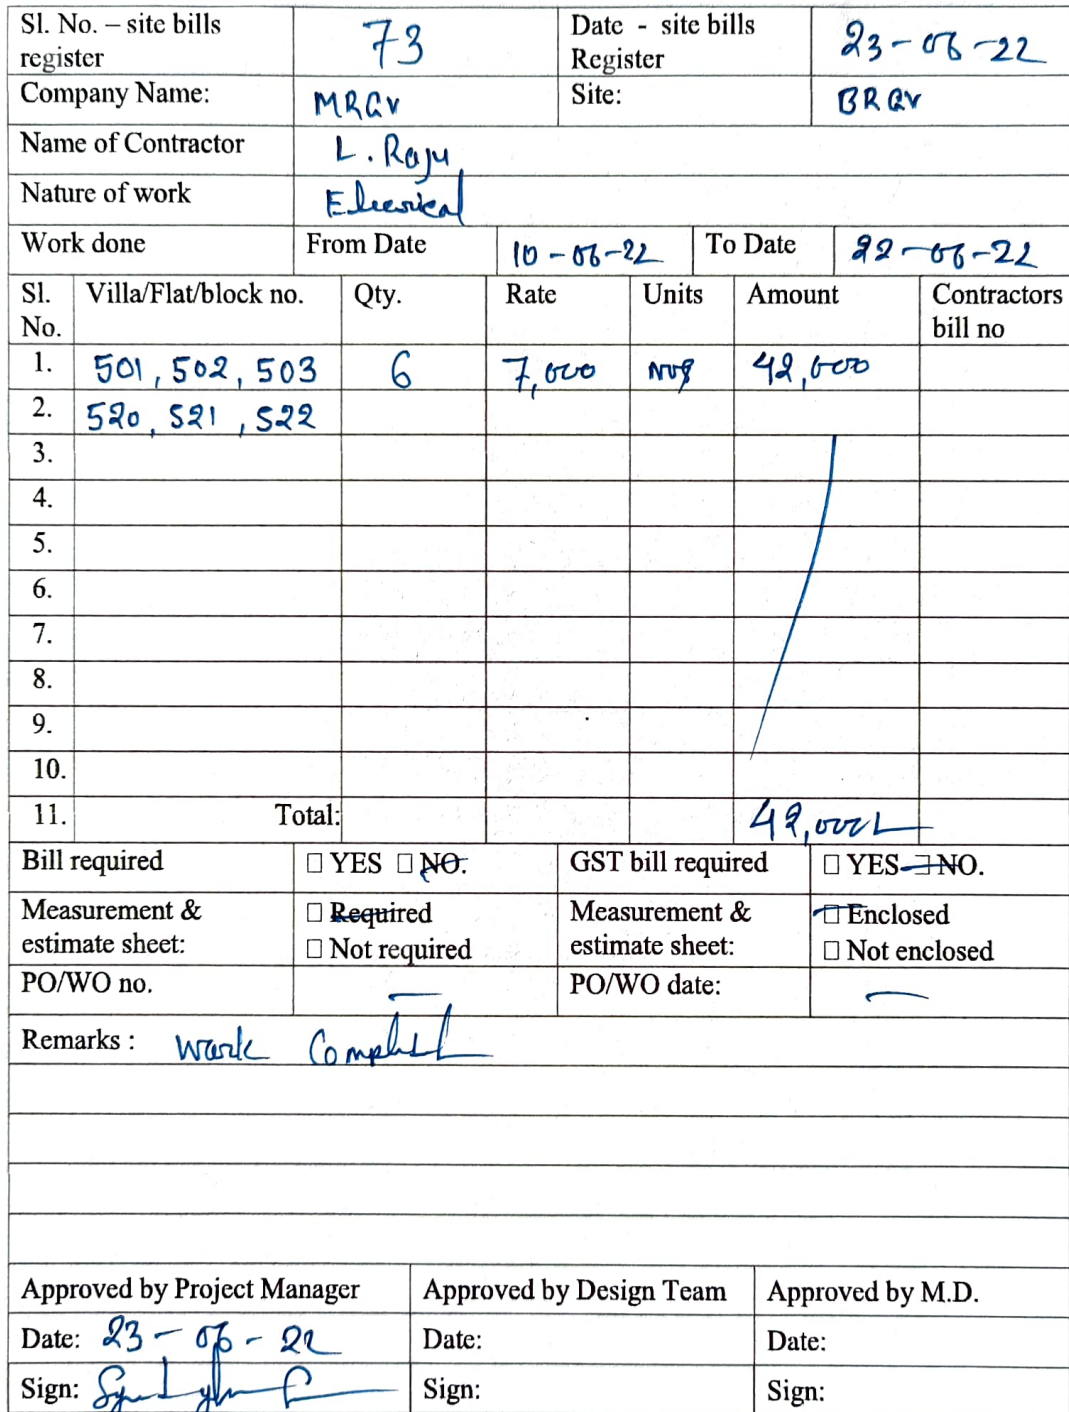 Sl. No. – site bills register 73 Date - site bills Register 23-06-22
Company Name: MRGV Site: BRGV
Name of Contractor L. Raju
Nature of work Elecrical
Work done From Date 10-06-22 To Date 22-06-22
Sl. No. Villa/Flat/block no. Qty. Rate Units Amount Contractors bill no
1. 501, 502, 503 6 7,000 nos 42,000
2. 520, 521, 522
3.
4.
5.
6.
7.
8.
9.
10.
11. Total: 42,000/-
Bill required □ YES □ NO. GST bill required □ YES □ NO.
Measurement & estimate sheet: □ Required □ Not required Measurement & estimate sheet: □ Enclosed □ Not enclosed
PO/WO no. — PO/WO date: —
Remarks : Work
Approved by Project Manager Approved by Design Team Approved by M.D.
Date: 23-06-22 Date: Date:
Sign: Sign: Sign: